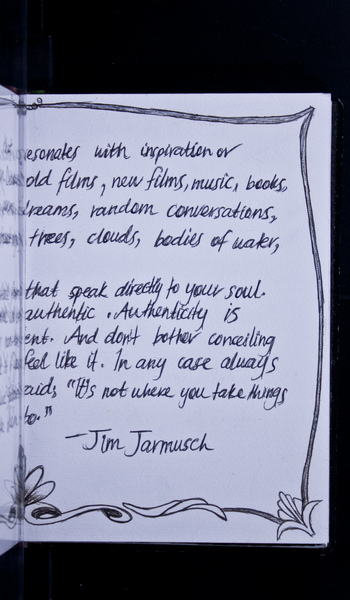 esonates with inspiration or
old films, new films, music, books,
dreams, random conversations,
trees, clouds, bodies of water,
that speak directly to your soul.
authentic. Authenticity is
ent. And don't bother conceiling
feel like it. In any case always
aid, "It's not where you take things
to."
—Jim Jarmusch